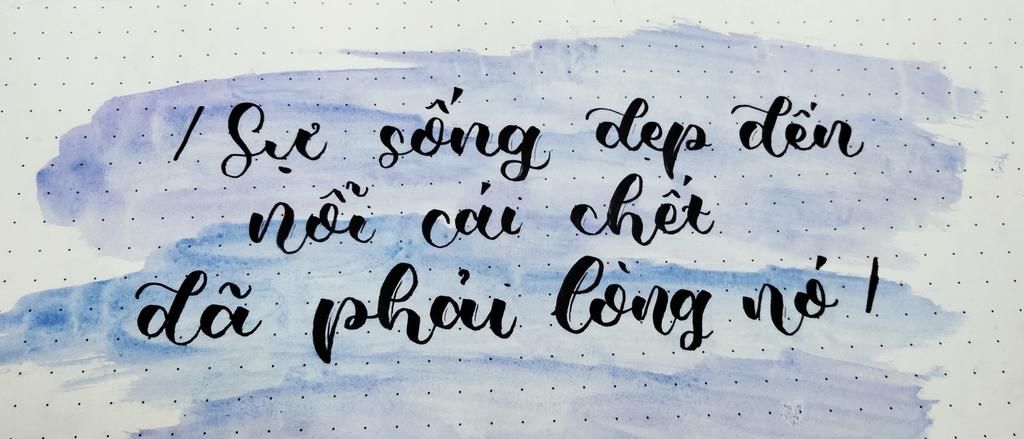 / Sự sống đẹp đến
nỗi cái chết
đã phải lòng nó /